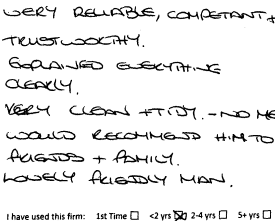 VERY RELIABLE, COMPETANT, +
TRUSTWORTHY.
EXPLAINED EVERYTHING
CLEARLY.
VERY CLEAN + TIDY. - NO ME
WOULD RECOMMEND HIM TO
FRIENDS + FAMILY.
LOVELY FRIENDLY MAN.
I have used this firm: 1st Time ☐ <2 yrs ☒ 2-4 yrs ☐ 5+ yrs ☐